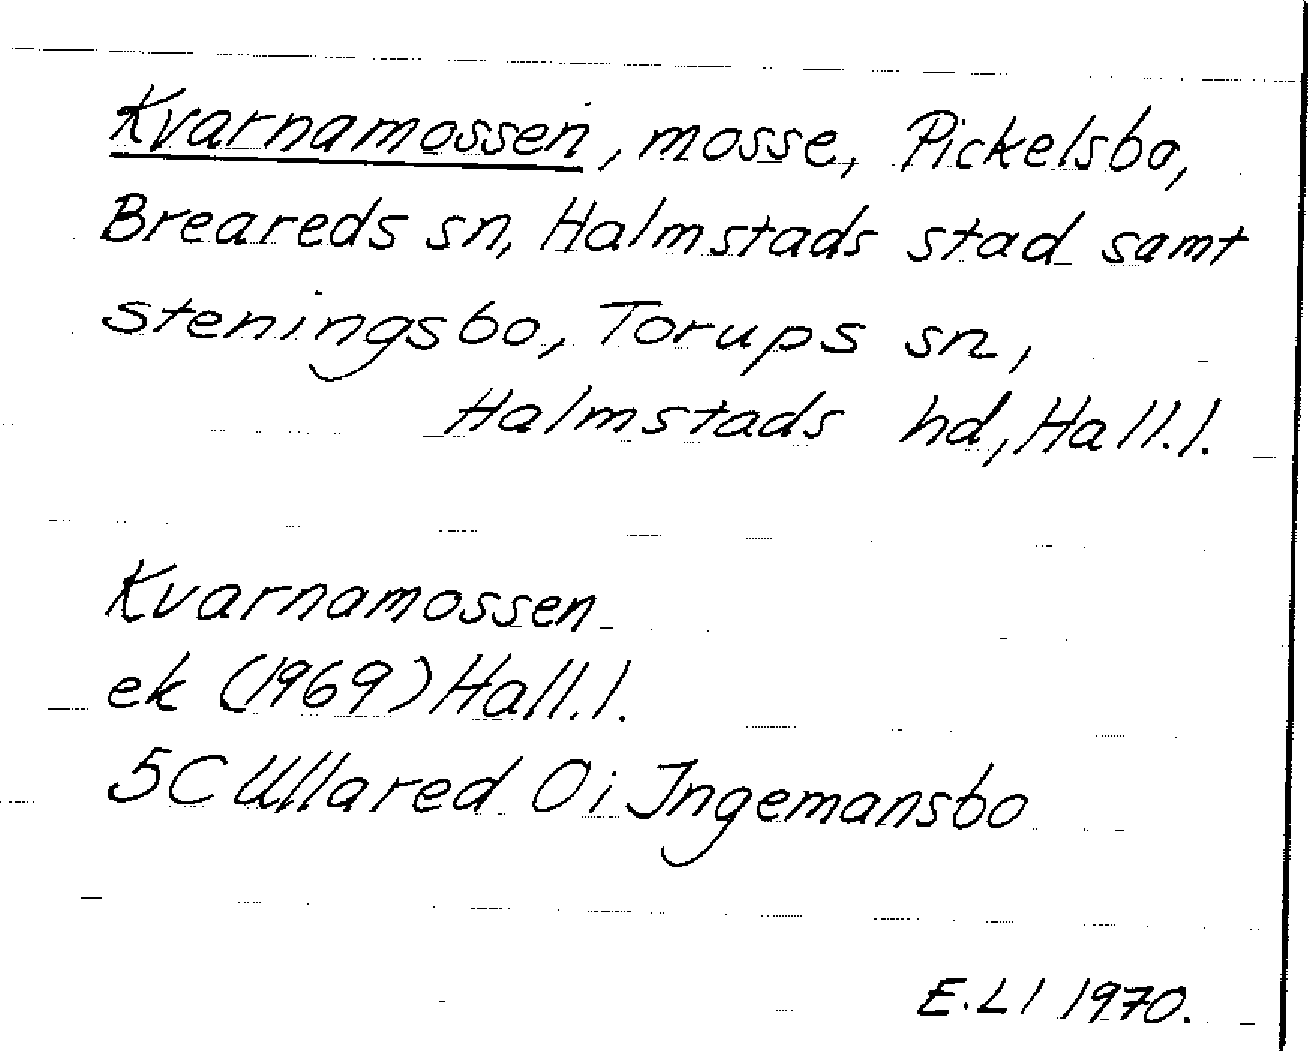 Kvarnamossen, mosse, Pickelsbo,
Breareds sn, Halmstads stad samt
Steningsbo, Torups sn,
Halmstads hd, Hall.l.
Kvarnamossen
ek (1969) Hall.l.
5C Ullared Oi Ingemansbo
E.Ll 1970.